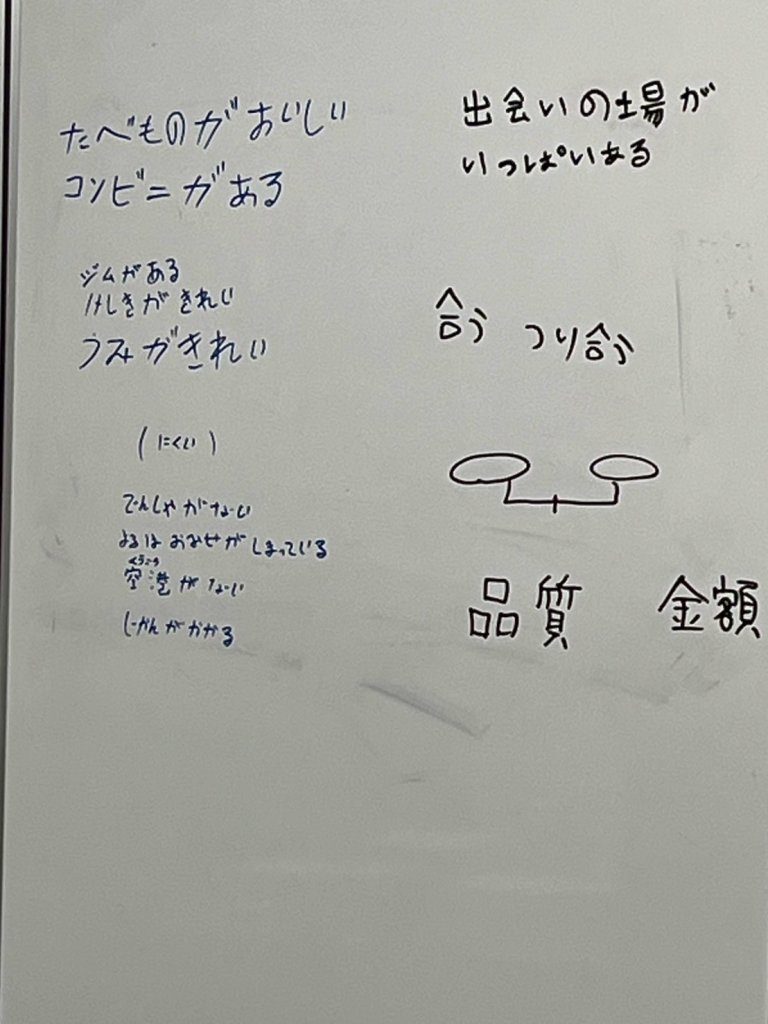 たべものがおいしい
コンビニがある
ジムがある
けしきがきれい
うみがきれい
(にくい)
でんしゃがない
よるはおみせがしまっている
くうこう
空港がない
じかんがかかる
出会いの場が
いっぱいある
合う つり合う
品質 金額